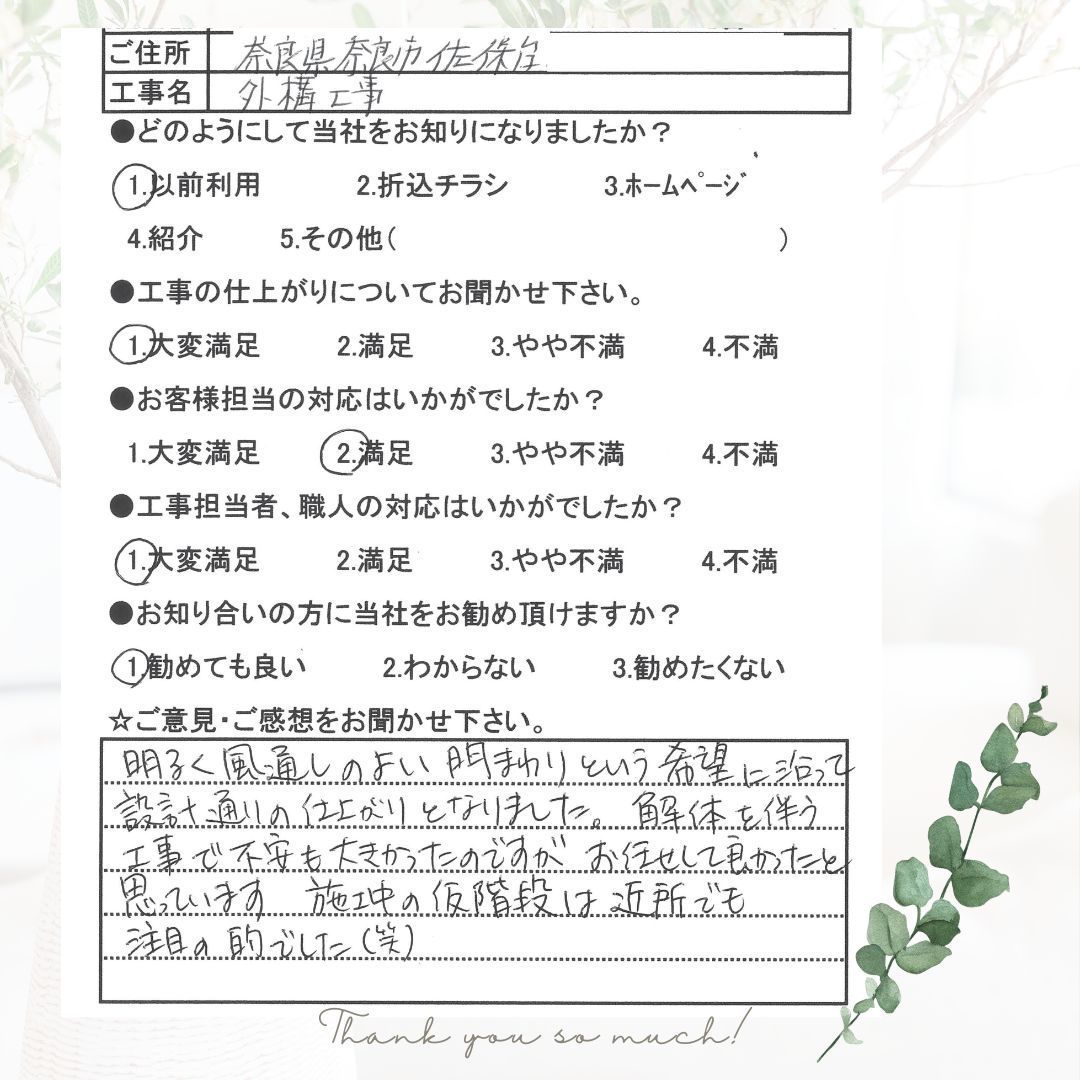 ご住所 奈良県奈良市佐保台
工事名 外構工事
●どのようにして当社をお知りになりましたか？
1.以前利用 2.折込チラシ 3.ﾎｰﾑﾍﾟｰｼﾞ
4.紹介 5.その他( )
●工事の仕上がりについてお聞かせ下さい。
1.大変満足 2.満足 3.やや不満 4.不満
●お客様担当の対応はいかがでしたか？
1.大変満足 2.満足 3.やや不満 4.不満
●工事担当者、職人の対応はいかがでしたか？
1.大変満足 2.満足 3.やや不満 4.不満
●お知り合いの方に当社をお勧め頂けますか？
1.勧めても良い 2.わからない 3.勧めたくない
☆ご意見・ご感想をお聞かせ下さい。
明るく風通しのよい門まわりという希望に沿って
設計通りの仕上がりとなりました。解体を伴う
工事で不安も大きかったのですが お任せして良かったと
思っています 施工中の仮階段は近所でも
注目の的でした(笑)
Thank you so much!